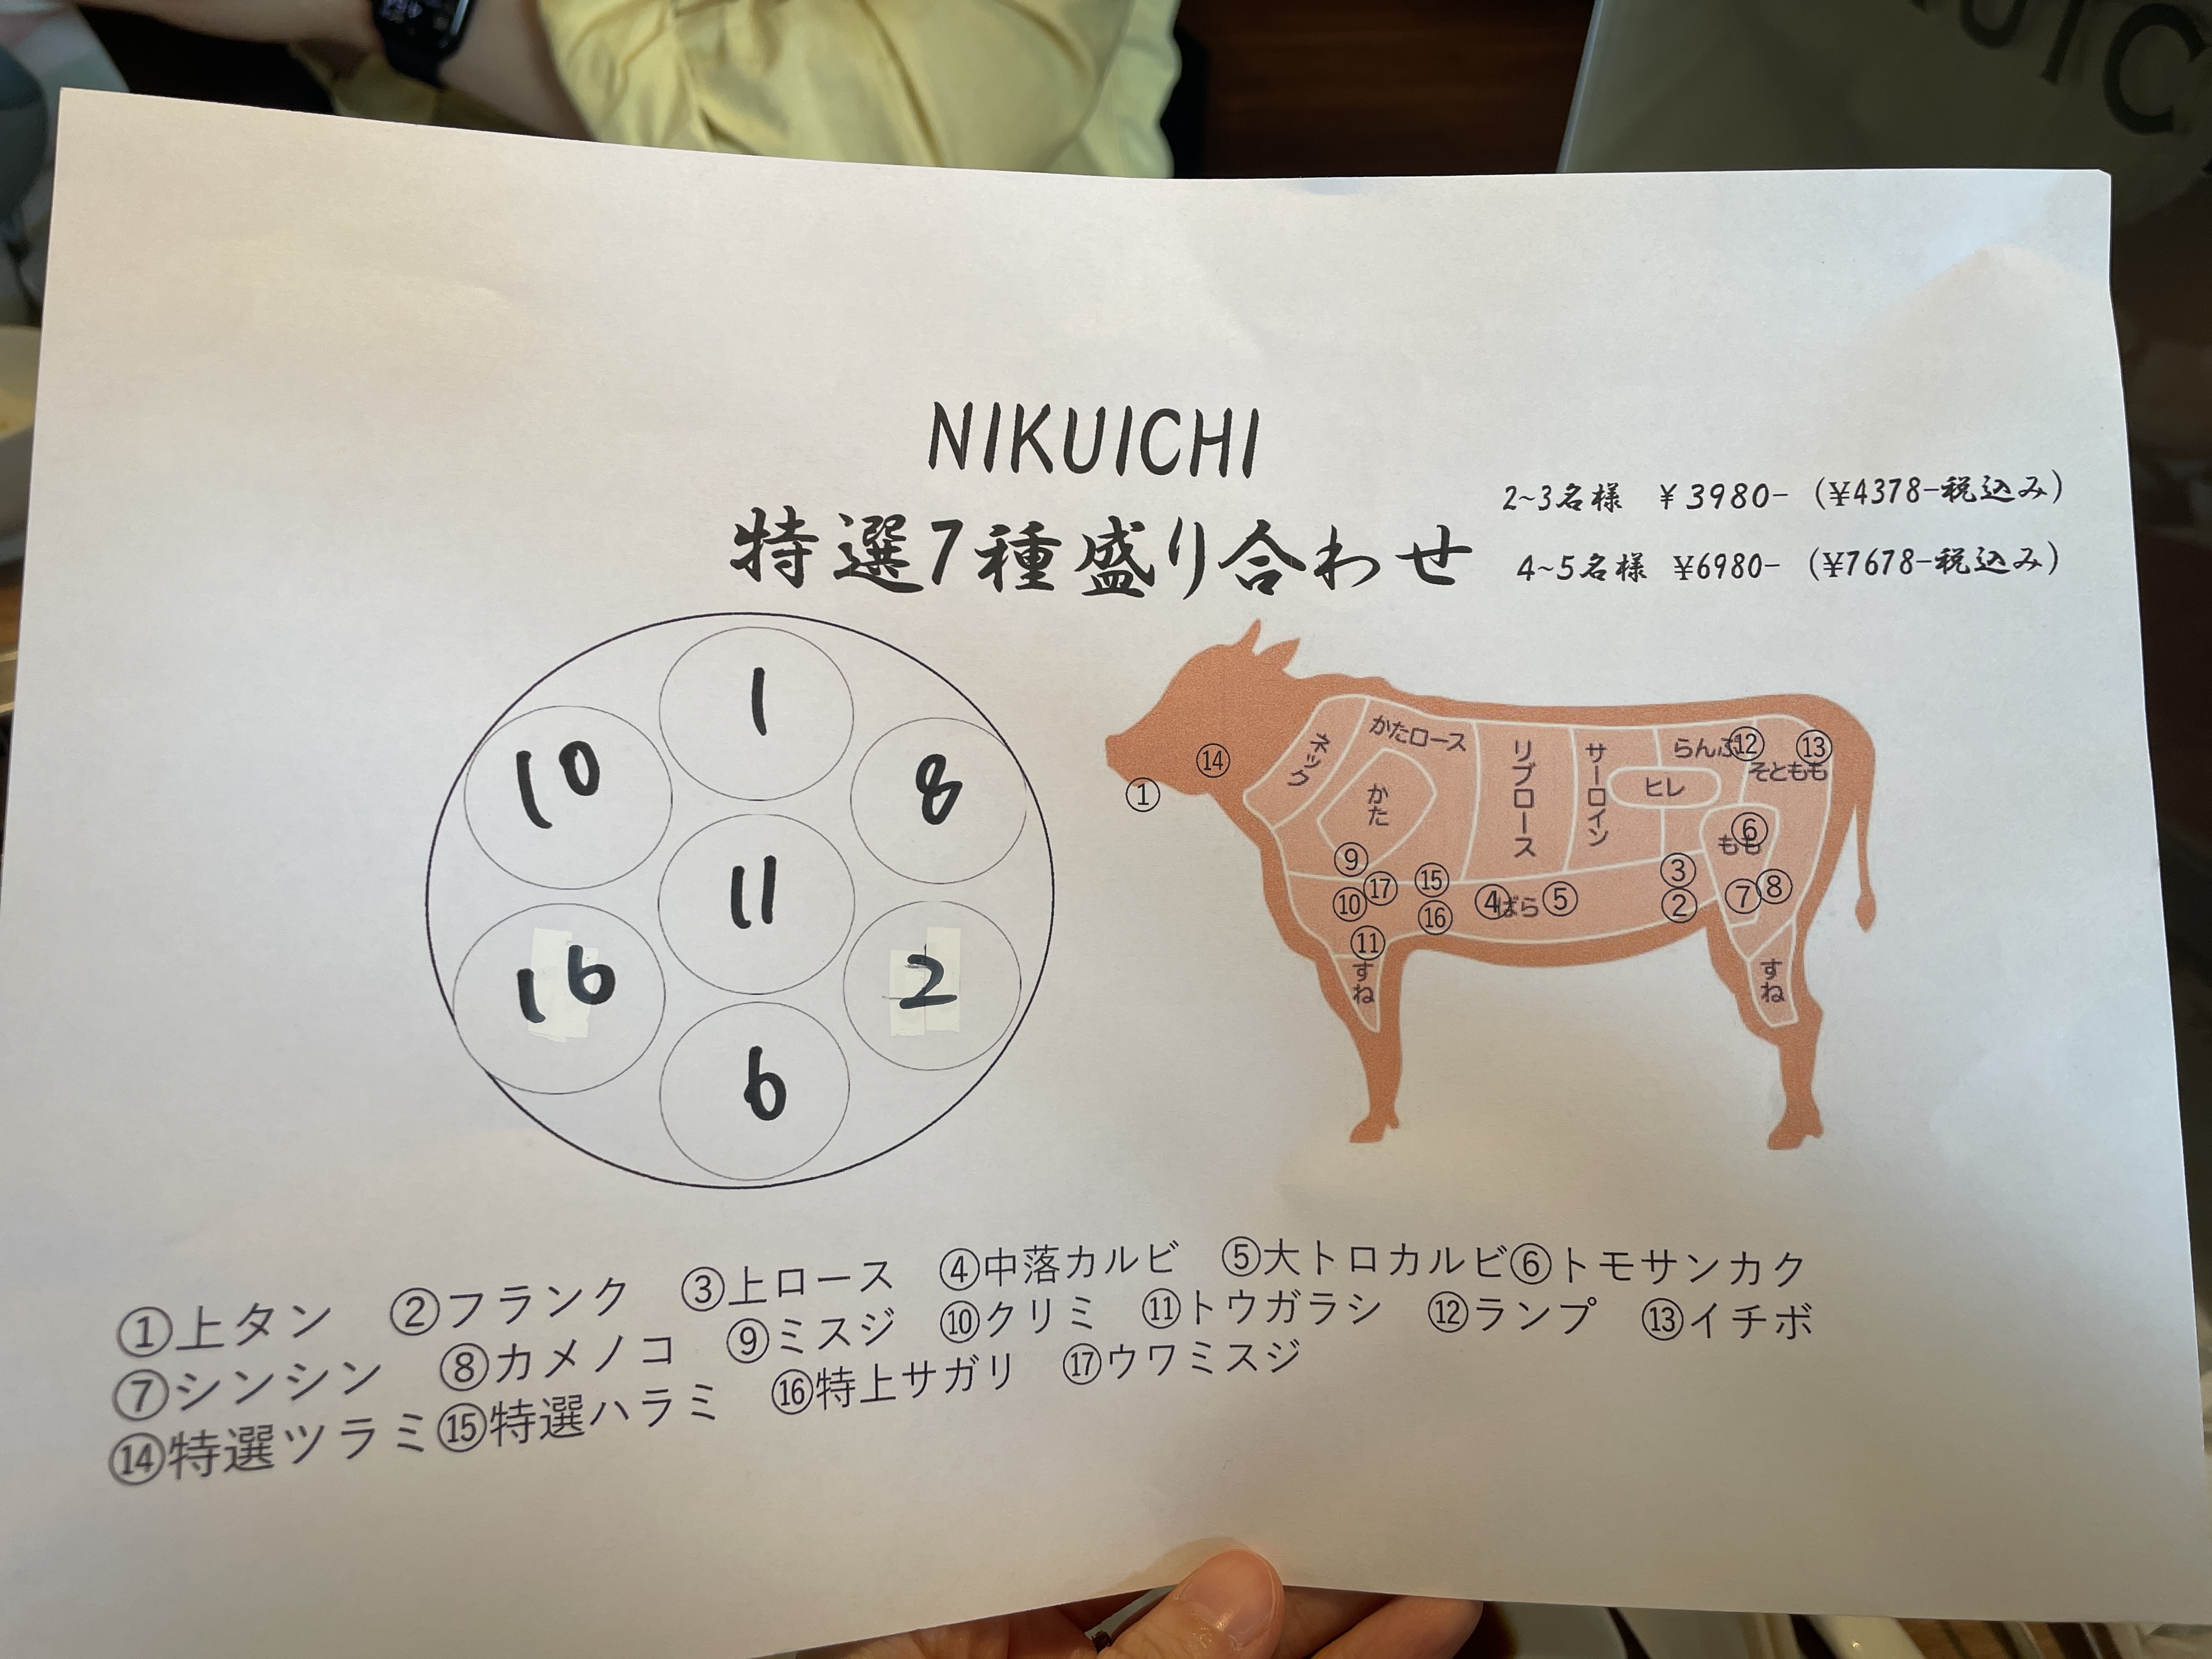 NIKUICHI
特選7種盛り合わせ
2~3名様 ¥3980- (¥4378-税込み)
4~5名様 ¥6980- (¥7678-税込み)
1
10
8
11
16
2
6
ネック
かたロース
かた
リブロース
サーロイン
ヒレ
らんぷ
そともも
もも
ばら
すね
すね
①
⑭
⑫
⑬
⑥
⑨
⑰
⑮
③
⑦
⑧
⑩
⑯
④
⑤
②
⑪
①上タン ②フランク ③上ロース ④中落カルビ ⑤大トロカルビ⑥トモサンカク
⑦シンシン ⑧カメノコ ⑨ミスジ ⑩クリミ ⑪トウガラシ ⑫ランプ ⑬イチボ
⑭特選ツラミ⑮特選ハラミ ⑯特上サガリ ⑰ウワミスジ